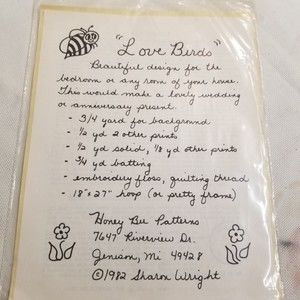 "Love Birds"
Beautiful design for the
bedroom or any room of your house.
This would make a lovely wedding
or anniversary present.
- 3/4 yard for background
- 1/2 yd 2 other prints
- 1/2 yd solid, 1/8 yd other prints
- 3/4 yd batting
- embroidery floss, quilting thread
- 18"x27" hoop (or pretty frame)
Honey Bee Patterns
7647 Riverview Dr.
Jenison, Mi 49428
©1982 Sharon Wright